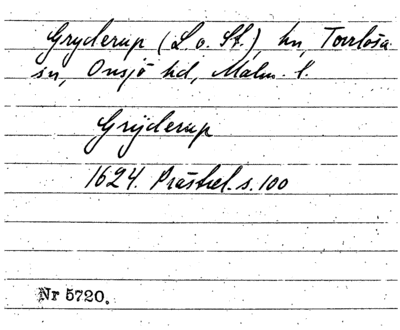 Gryderup (L. o. St.), hn, Torrlösa
sn, Onsjö hd, Malm. l.
Grijderup
1624. Prästrel. s. 100
Nr 5720.